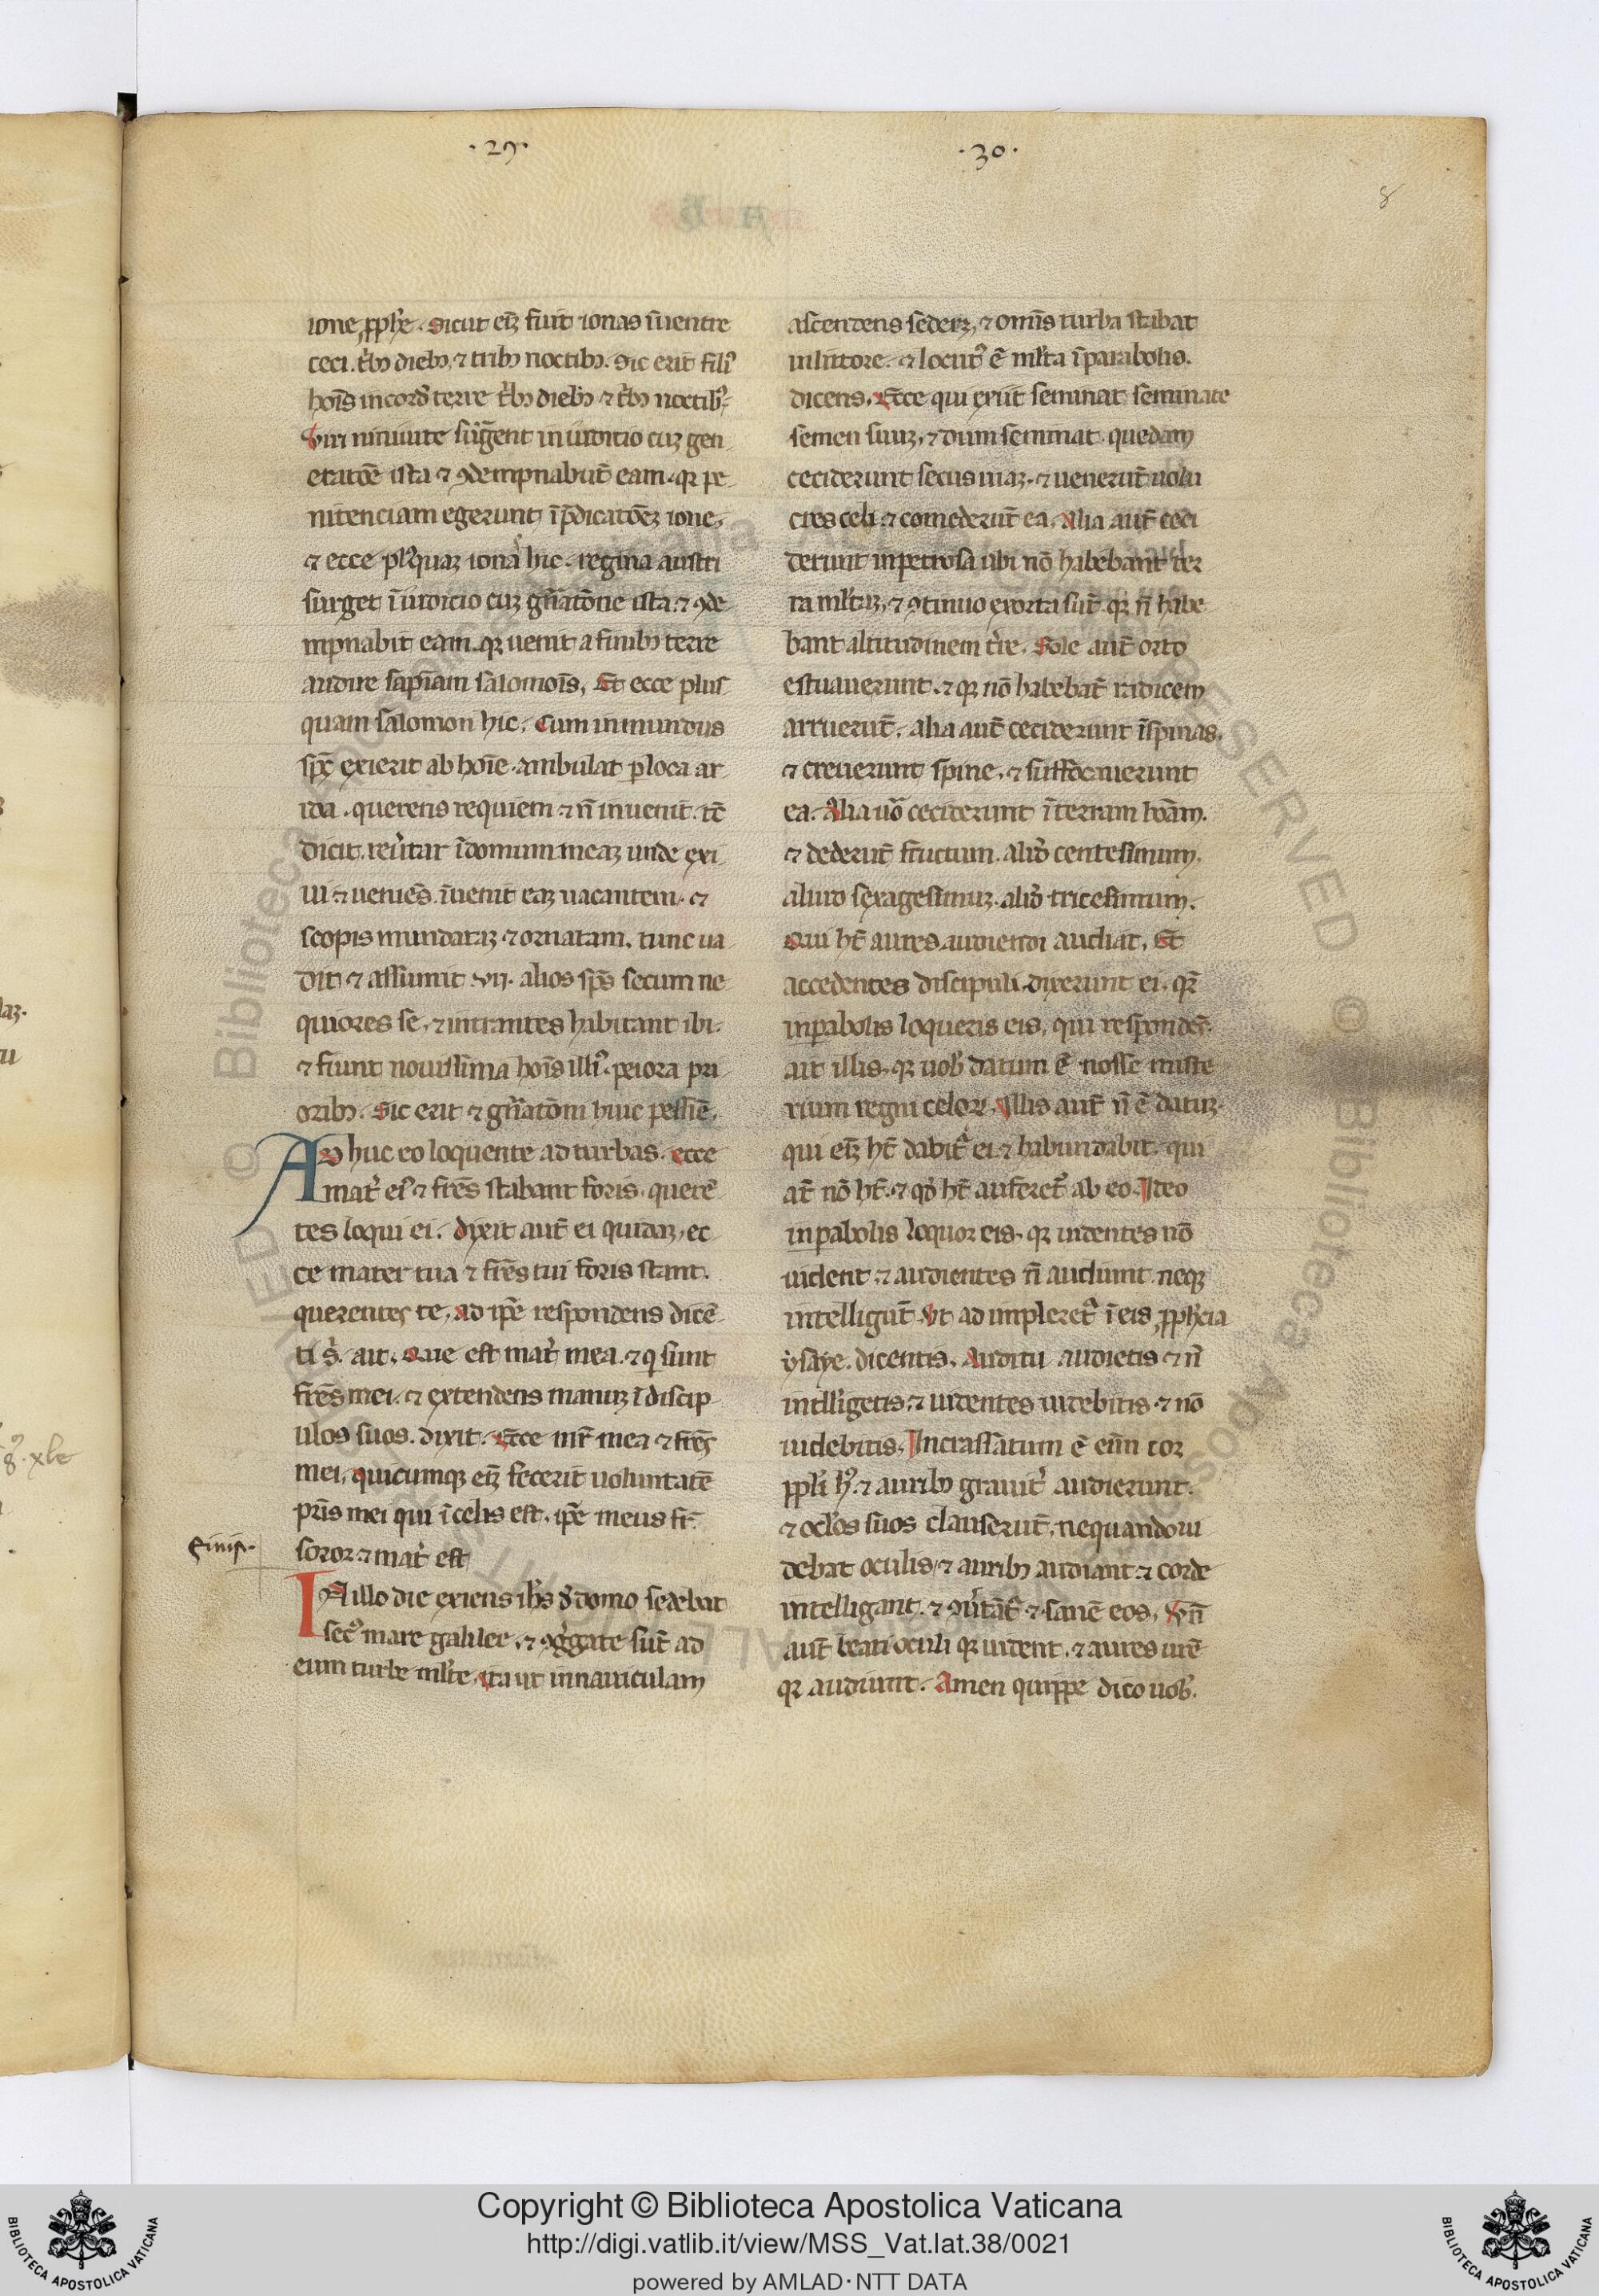 .29.
.30.
8
ione ꝓph̄e. Sicut ei᷒ fuit ionas ī uentre
ceti. tͥbꝫ diebꝫ ⁊ tribꝫ noctibꝫ. Sic erit fili᷒
hoīs in corde terre tͥbꝫ diebꝫ ⁊ tͥbꝫ noctib᷒
Viri niniuite surgent in iudicio cuꝫ gen
eratōe ista ⁊ ꝯdempnabūt eam. qꝛ pe
nitenciam egerunt ī p̄dicatōeꝫ ione.
⁊ ecce plꝰquaꝫ iona hic. regina austri
surget ī iudicio cuꝫ gn̄atōne ista. ⁊ ꝯde
mpnabit eam. qꝛ uenit a finibꝫ terre
audire sapīam salomoīs. Et ecce plus
quam salomon hic. Cum inmundus
sp̄c exierit ab hoīe. ambulat ꝑ loca ar
ida. querens requiem. ⁊ n̄ inuenit. tc̄
dicit. reūtar ī domum meaꝫ unde exi
ui. ⁊ ueniēs. īuenit eaꝫ uacantem. ⁊
scopis mundataꝫ ⁊ ornatam. tunc ua
dit ⁊ assumit .vij. alios sp̄s secum ne
quiores se. ⁊ intrantes habitant ibi.
⁊ fiunt nouissima hoīs illi᷒. peiora pri
oribꝫ. Sic erit ⁊ gn̄atōni huic pessīe.
Adhuc eo loquente ad turbas. ecce
matͬ ei᷒ ⁊ fr̄es stabant foris. querē
tes loqui ei. dixit aut̄ ei quidaꝫ. ec
ce mater tua ⁊ fr̄es tui foris stant.
querentes te. ad ip̄e respondens dicē
ti s. ait. Que est matͬ mea. ⁊ q sunt
fr̄es mei. ⁊ extendens manuꝫ ī discip
ulos suos. dixit. Ecce mr̄ mea ⁊ fr̄es
mei. quicumqꝫ ei᷒ fecerit uoluntatē
pr̄is mei qui ī celis est. ip̄e meus fr̄.
soror. ⁊ matͬ est
IN illo die exiens ih̄s de domo sedebat
sec᷒ mare galilee. ⁊ ꝯg̃gate sūt ad
eum turbe ml̄te. ita ut in nauiculam
ascendens sederꝫ. ⁊ omīs turba stabat
in littore. ⁊ locut᷒ ē ml̄ta ī parabolis.
dicens. Ecce qui exiit seminat seminare
semen suuꝫ. ⁊ dum seminat. quedam
ceciderunt secus uiaꝫ. ⁊ uenerūt uolu
cres celi. ⁊ comederūt ea. Alia aut̄ ceci
derunt in petrosa ubi nō habebant ter
ra ml̄taꝫ. ⁊ ꝯtinuo exorta sūt. qꝛ n̄ habe
bant altitudinem tͬre. Sole aut̄ orto
estuauerunt. ⁊ qꝛ nō habebāt radicem
arruerūt. alia aut̄ ceciderunt ī spinas.
⁊ creuerunt spine. ⁊ suffocauerunt
ea. Alia u̓o ceciderunt ī terram boām.
⁊ dederūt fructum. aliᷘd centesimum.
aliud sexagesimuꝫ. aliᷘd tricesimum.
Qui hт̄ aures audiendi audiat. Et
accedentes discipuli dixerunt ei. qͬ
in ꝑabolis loqueris eis. qui respondēs
ait illis. qꝛ uob̓ datum ē nosse miste
rium regni celoꝝ. Illis aut̄ n̄ ē datuꝫ.
qui ei᷒ ht̄ dabitͬ ei. ⁊ habundabit. qui
at̄ nō ht̄. ⁊ qd̓ ht̄ auferetͬ ab eo. Ideo
in ꝑabolis loquor eis. qꝛ uidentes nō
uident. ⁊ audientes n̄ audiunt. neqꝫ
intelligūt. Vt ad impleretͬ ī eis ꝓph̄cia
ysaye. dicentis. Auditu audietis ⁊ n̄
intll̓igetis. ⁊ uidentes uidebitis. ⁊ nō
uidebitis. Incrassatum ē ein̄ cor
ppl̓i h᷒. ⁊ auribꝫ grauitͬ audierunt.
⁊ ocl̓os suos clauserūt. ne quando ui
debāt oculis. ⁊ auribꝫ audiant. ⁊ corde
intelligant. ⁊ ꝯu̓tātͬ. ⁊ sanē eos. Vr̄i
aut̄ beati oculi qꝛ uident. ⁊ aures ur̄e
qꝛ audiunt. Amen quippe dico uob̓.
Copyright © Biblioteca Apostolica Vaticana
http://digi.vatlib.it/view/MSS_Vat.lat.38/0021
powered by AMLAD·NTT DATA
BIBLIOTECA APOSTOLICA VATICANA
BIBLIOTECA APOSTOLICA VATICANA